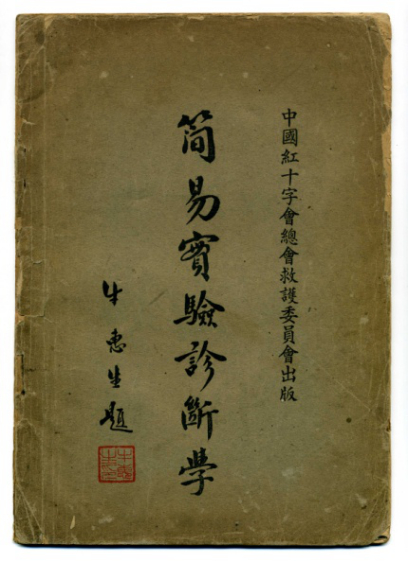 中國紅十字會總會救護委員會出版
簡易實驗診斷學
牛惠生題